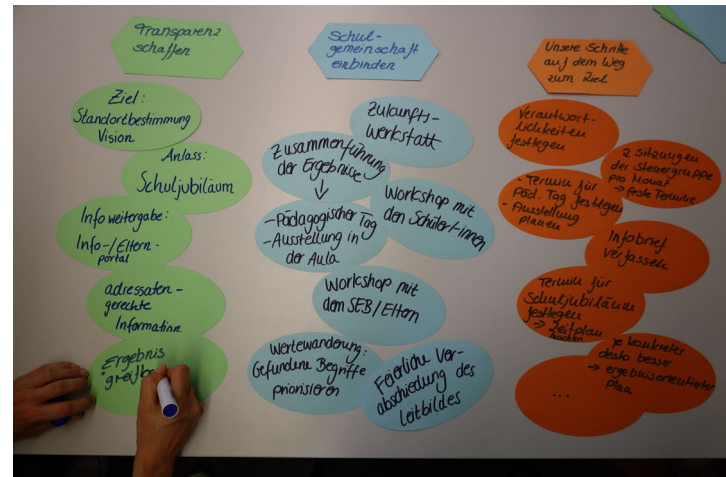 Transparenz
schaffen
Ziel:
Standortbestimmung
Vision
Anlass:
Schuljubiläum
Infoweitergabe:
Info-/Eltern-
portal
adressaten-
gerechte
Information
Ergebnis
Schul-
gemeinschaft
einbinden
Zukunfts-
werkstatt
Zusammenführung
der Ergebnisse
↓
-Pädagogischer Tag
-Ausstellung in
der Aula
Workshop mit
den Schüler*innen
Workshop mit
dem SEB/Eltern
Wertewanderung:
Gefundene Begriffe
priorisieren
Feierliche Ver-
abschiedung des
Leitbildes
Unsere Schritte
auf dem Weg
zum Ziel
Verantwort-
lichkeiten
festlegen
2 Sitzungen
der Steuergruppe
pro Monat
→ feste Termine
- Termin für
Päd. Tag festlegen
- Ausstellung
planen
Infobrief
verfassen
Termin für
Schuljubiläum
festlegen
→ Zeitplan
je konkreter
desto besser
→ ergebnisorientierter
Plan
...